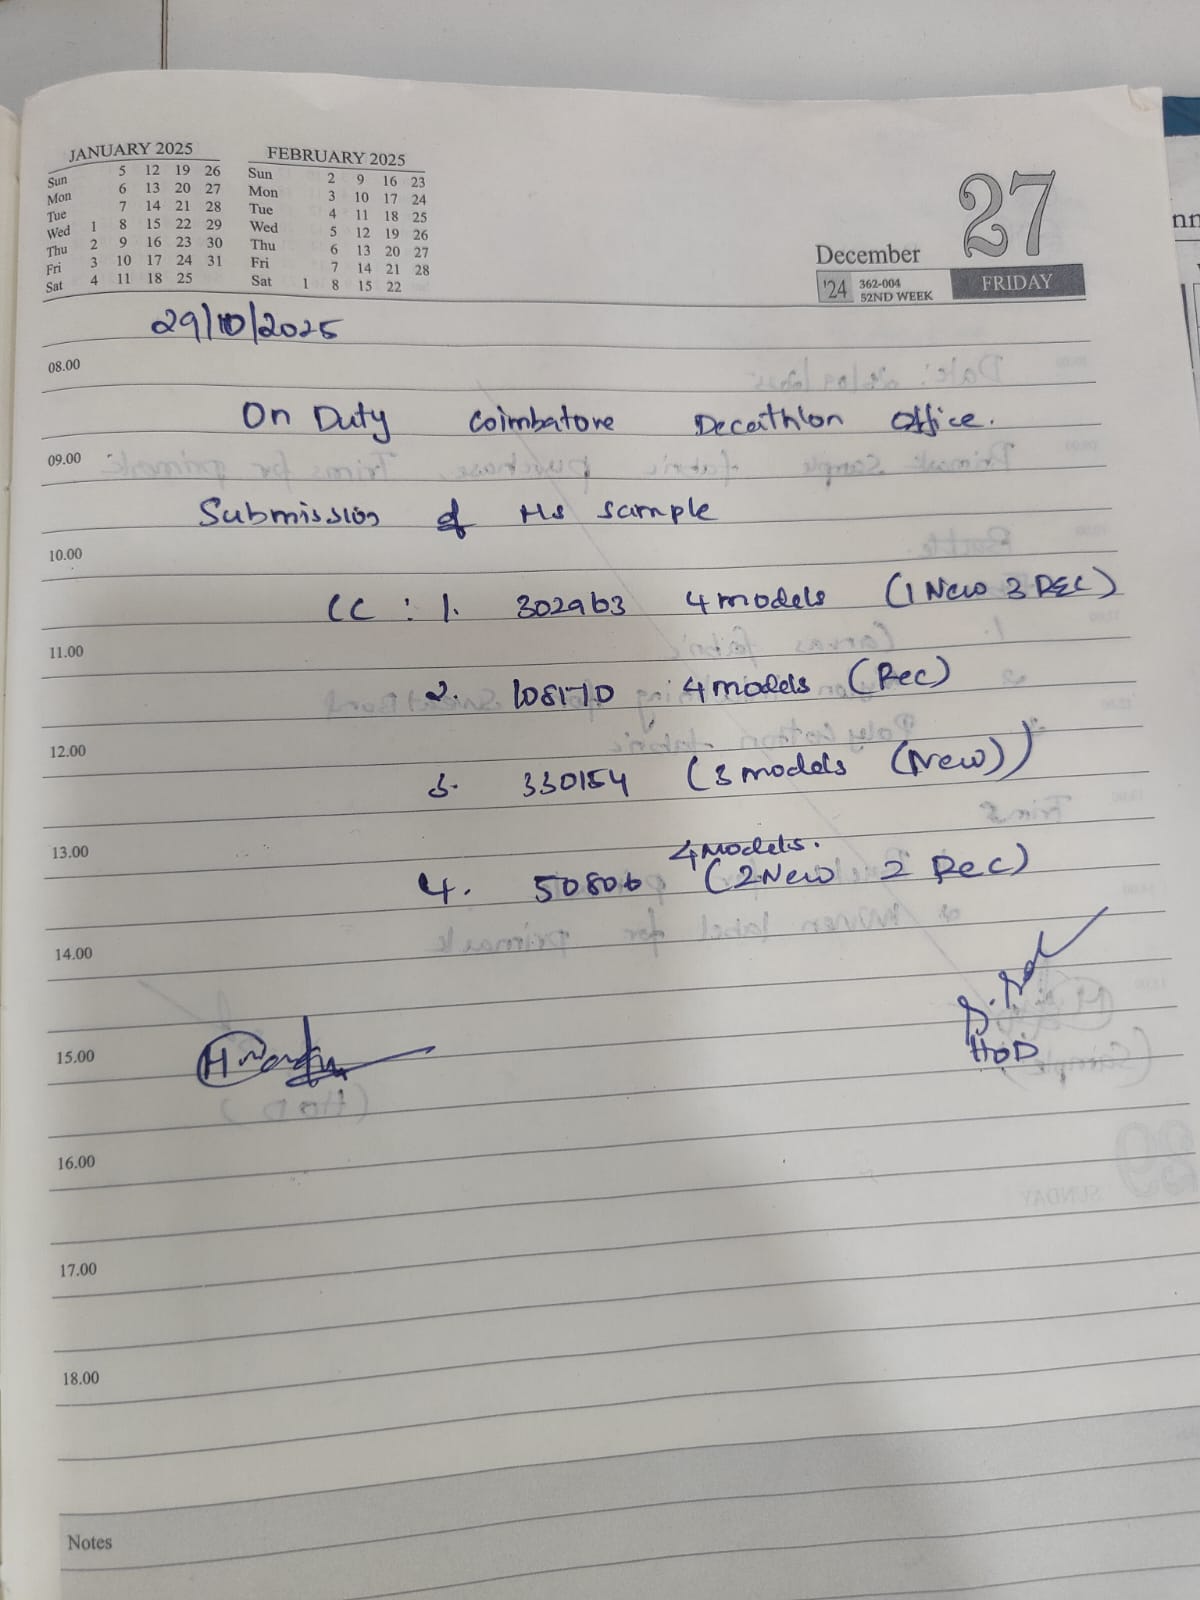 JANUARY 2025
Sun 5 12 19 26
Mon 6 13 20 27
Tue 7 14 21 28
Wed 1 8 15 22 29
Thu 2 9 16 23 30
Fri 3 10 17 24 31
Sat 4 11 18 25
FEBRUARY 2025
Sun 2 9 16 23
Mon 3 10 17 24
Tue 4 11 18 25
Wed 5 12 19 26
Thu 6 13 20 27
Fri 7 14 21 28
Sat 1 8 15 22
27
December
'24 362-004 FRIDAY
52ND WEEK
29/10/2025
08.00
On Duty Coimbatore Decathlon Office.
09.00
Submission of Hs sample
10.00
CC : 1. 302963 4 models (1 New 3 REC)
11.00
2. 4 models (Rec)
12.00
3. 330154 (3 models (New))
13.00
4 Models.
4. 50806 (2 New 2 Rec)
14.00
HOD
15.00
16.00
17.00
18.00
Notes